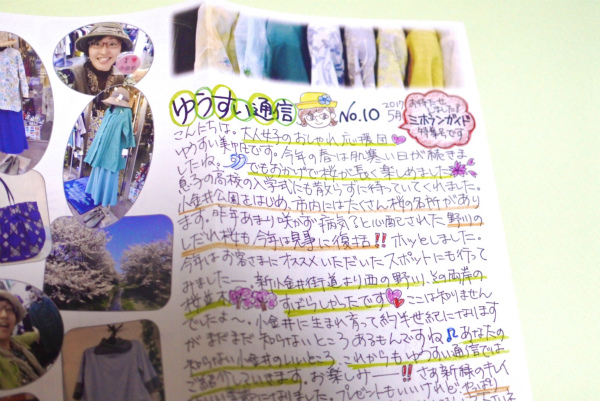 ゆうすい通信 No.10 2017 5月
お待たせしました!!
ミホランガイド
特集号です
こんにちは。大人女子のおしゃれ応援団
ゆうすい美中庄です。今年の春は肌寒い日が続きま
したね。でもおかげで桜が長く楽しめました
息子の高校の入学式にも散らずに待っていてくれました。
小金井公園をはじめ、市内にはたくさん桜の名所があり
ます。昨年あまり咲かず病気?と心配された野川の
しだれ桜も今年は見事に復活!!ホッとしました。
今年はお客さまにオススメいただいたスポットにも行って
みましたー 新小金井街道より西の野川、その両岸の
桜並木 すばらしかったです ここは知りません
でしたよ〜。小金井に生まれ育って約半世紀になります
がまだまだ知らないところあるもんですね♪あなたの
知らない小金井のいいところ、これからもゆうすい通信では
ご紹介していきます。お楽しみー!! さぁ新緑のキレイ
になりました。プレゼントもいいけれどやっぱり